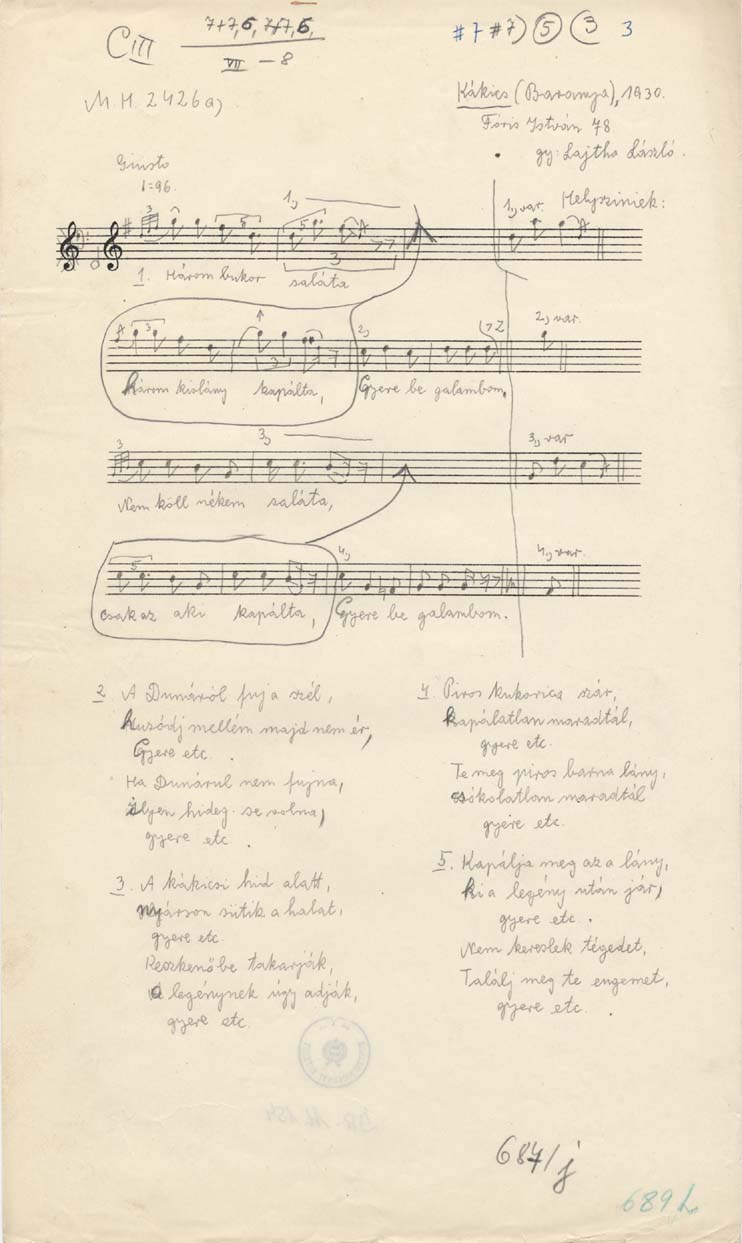 CIII 7+7,6, 7+7,6, VII - 8
#7 #7) 5 3 3
M.H. 2426a)
Kákics (Baranya), 1930.
Fóris István 78.
gy: Lajtha László.
Giusto
♪=96.
1, 1, var. Helyszíniek:
5 5
3
1. Három bukor saláta
3 2, 2, var.
Három kislány kapálta, Gyere be galambom,
3 3, 3, var
Nem köll nékem saláta,
5 4, 4, var.
csak az aki kapálta, Gyere be galambom.
2. A Dunáról fuj a szél,
Huzódj mellém majd nem ér,
Gyere etc.
Ha Dunárul nem fujna,
ilyen hideg se volna,
gyere etc.
3. A kákicsi hid alatt,
nyárson sütik a halat,
gyere etc.
Keszkenőbe takarják,
a legénynek úgy adják,
gyere etc.
4. Piros kukorica szár,
kapálatlan maradtál,
gyere etc.
Te meg piros barna lány,
csókolatlan maradtál
gyere etc.
5. Kapálja meg az a lány,
ki a legény után jár,
gyere etc.
Nem kereslek tégedet,
Találj meg te engemet,
gyere etc.
684/j
689L